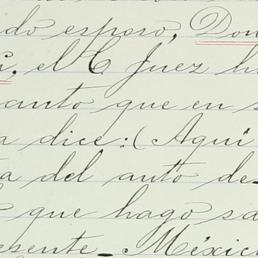 do esposo, Don
el C Juez h
anto que en s
a dice: (Aquí
a del auto de-
que hago sa
esente_ México